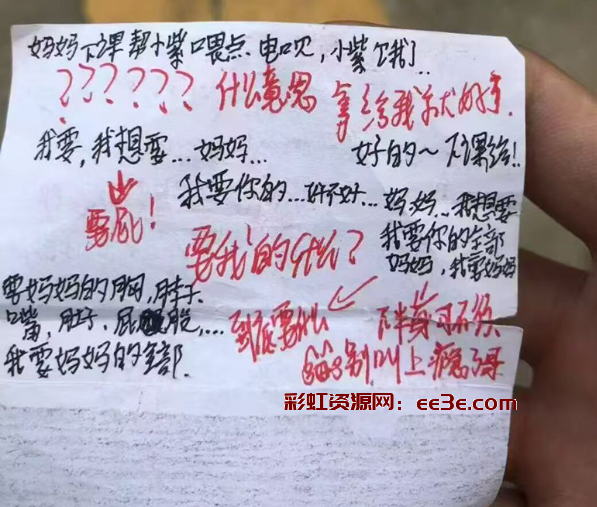 妈妈下课帮小紫口喂点
小紫饿了
?????? 什么意思 拿给我
我要,我想要...妈妈...
好的～下课给!
要屁!
我要你的...好不好...妈妈...我想要
我要你的全部
妈妈,我要妈妈
要我的什么?
要妈妈的胸,脖子
嘴,肚子,屁股,...
我要妈妈的全部.
到底要什么
下半身可不须
别叫上瘾了
彩虹资源网：ee3e.com